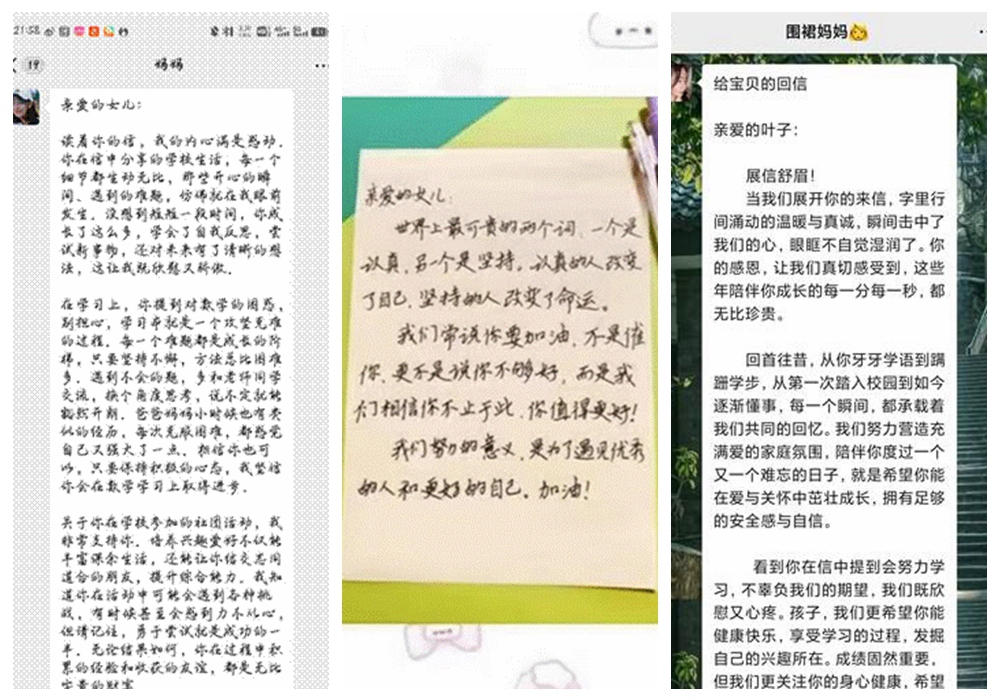 21:58
19
妈妈
亲爱的女儿：
读着你的信，我的内心满是感动。
你在信中分享的学校生活，每一个
细节都生动无比，那些开心的瞬
间、遇到的难题，仿佛就在我眼前
发生。没想到短短一段时间，你成
长了这么多，学会了自我反思，尝
试新事物，还对未来有了清晰的想
法，这让我既欣慰又骄傲。
在学习上，你提到对数学的困惑，
别担心，学习本就是一个攻坚克难
的过程。每一个难题都是成长的阶
梯，只要坚持不懈，方法总比困难
多。遇到不会的题，多和老师同学
交流，换个角度思考，说不定就能
豁然开朗。爸爸妈妈小时候也有类
似的经历，每次克服困难，都感觉
自己又强大了一点。相信你也可
以，只要保持积极的心态，我坚信
你会在数学学习上取得进步。
关于你在学校参加的社团活动，我
非常支持你。培养兴趣爱好不仅能
丰富课余生活，还能让你结交志同
道合的朋友，提升综合能力。我知
道你在活动中可能会遇到各种挑
战，有时候甚至会感到力不从心，
但请记住，勇于尝试就是成功的一
半。无论结果如何，你在过程中积
累的经验和收获的友谊，都是无比
宝贵的财富
亲爱的女儿：
世界上最可贵的两个词，一个是
认真，另一个是坚持。认真的人改变
了自己，坚持的人改变了命运。
我们常说你要加油，不是催
你，更不是说你不够好，而是我
们相信你不止于此，你值得更好！
我们努力的意义，是为了遇见优秀
的人和更好的自己。加油！
围裙妈妈
给宝贝的回信
亲爱的叶子：
展信舒眉！
当我们展开你的来信，字里行
间涌动的温暖与真诚，瞬间击中了
我们的心，眼眶不自觉湿润了。你
的感恩，让我们真切感受到，这些
年陪伴你成长的每一分每一秒，都
无比珍贵。
回首往昔，从你牙牙学语到蹒
跚学步，从第一次踏入校园到如今
逐渐懂事，每一个瞬间，都承载着
我们共同的回忆。我们努力营造充
满爱的家庭氛围，陪伴你度过一个
又一个难忘的日子，就是希望你能
在爱与关怀中茁壮成长，拥有足够
的安全感与自信。
看到你在信中提到会努力学
习，不辜负我们的期望，我们既欣
慰又心疼。孩子，我们更希望你能
健康快乐，享受学习的过程，发掘
自己的兴趣所在。成绩固然重要，
但我们更关注你的身心健康，希望